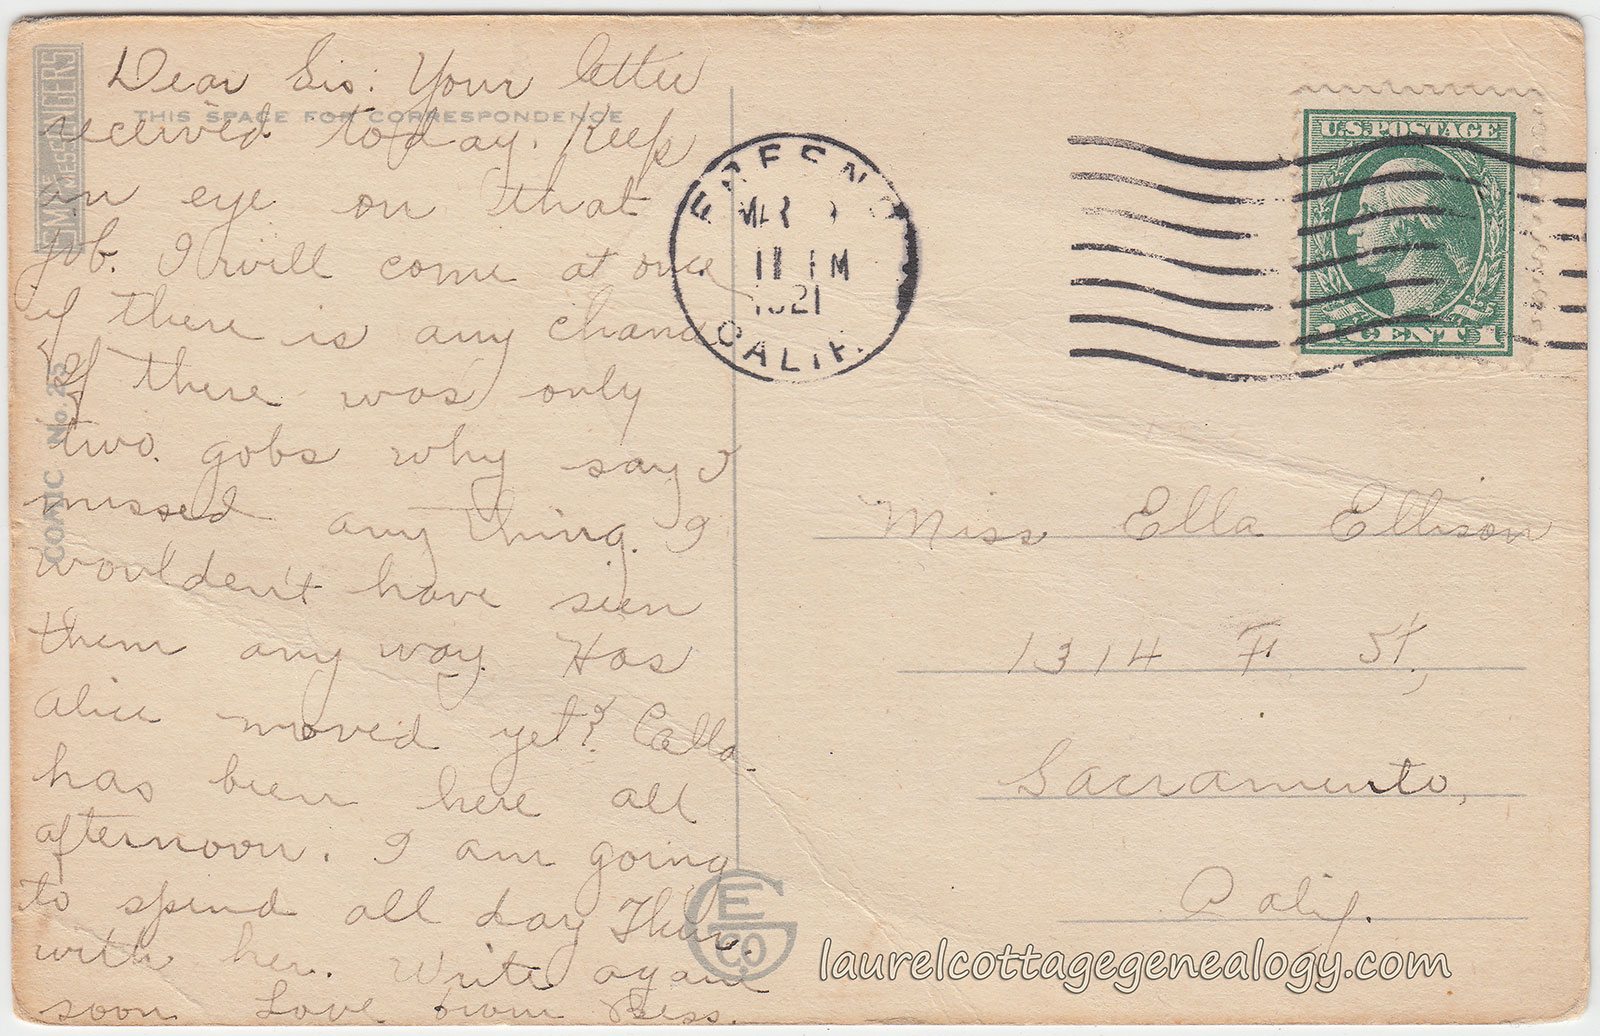 Dear Sis: Your letter
received today. Keep
an eye on that
job. I will come at once
if there is any chance
If there was only
two gobs why say I
missed anything. I
woulden't have seen
them any way. Has
Alice moved yet? Calla
has been here all
afternoon. I am going
to spend all day Thur.
with her. Write again
soon Love from Bess.
THIS SPACE FOR CORRESPONDENCE
SMILE MESSENGERS
COMIC No. 23
FRESNO
MAR
11 PM
1921
CALIF.
U.S. POSTAGE
1 CENT 1
Miss Ella Ellison
1314 F St,
Sacramento,
Calif.
E G CO
laurelcottagegenealogy.com